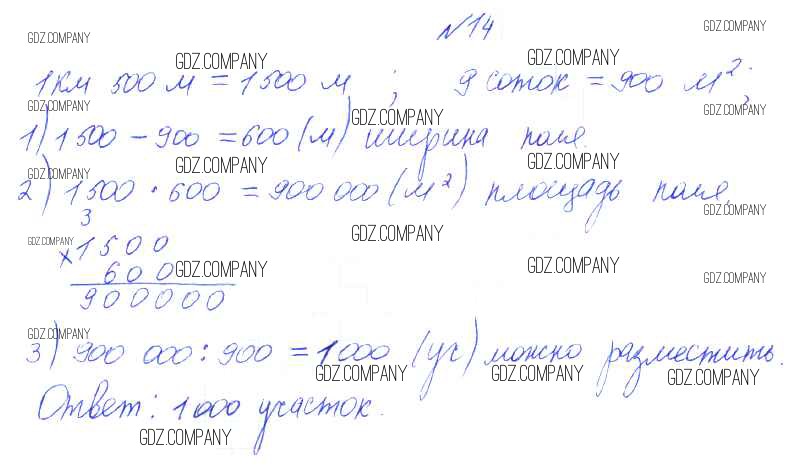 №14
GDZ.COMPANY GDZ.COMPANY GDZ.COMPANY GDZ.COMPANY
1 км 500 м = 1500 м ; 9 соток = 900 м²;
GDZ.COMPANY GDZ.COMPANY GDZ.COMPANY
1) 1500 - 900 = 600 (м) ширина поля.
GDZ.COMPANY GDZ.COMPANY GDZ.COMPANY
2) 1500 · 600 = 900 000 (м²) площадь поля.
GDZ.COMPANY
3
GDZ.COMPANY GDZ.COMPANY
×1500
600
GDZ.COMPANY GDZ.COMPANY GDZ.COMPANY
900000
GDZ.COMPANY
3) 900 000 : 900 = 1000 (уч) можно разместить.
GDZ.COMPANY GDZ.COMPANY GDZ.COMPANY
Ответ: 1000 участок.
GDZ.COMPANY